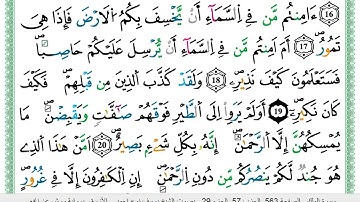 ١٦ ءَامِنتُم مَّن فِى ٱلسَّمَآءِ أَن يَخْسِفَ بِكُمُ ٱلْأَرْضَ فَإِذَا هِىَ
تَمُورُ ١٧ أَمْ أَمِنتُم مَّن فِى ٱلسَّمَآءِ أَن يُرْسِلَ عَلَيْكُمْ حَاصِبًا
فَسَتَعْلَمُونَ كَيْفَ نَذِيرِ ١٨ وَلَقَدْ كَذَّبَ ٱلَّذِينَ مِن قَبْلِهِمْ فَكَيْفَ
كَانَ نَكِيرِ ١٩ أَوَلَمْ يَرَوْا۟ إِلَى ٱلطَّيْرِ فَوْقَهُمْ صَٰٓفَّٰتٍ وَيَقْبِضْنَ مَا
يُمْسِكُهُنَّ إِلَّا ٱلرَّحْمَٰنُ إِنَّهُۥ بِكُلِّ شَىْءٍۭ بَصِيرٌ ٢٠ أَمَّنْ هَٰذَا ٱلَّذِى
هُوَ جُندٌ لَّكُمْ يَنصُرُكُم مِّن دُونِ ٱلرَّحْمَٰنِ إِنِ ٱلْكَٰفِرُونَ إِلَّا فِى غُرُورٍ